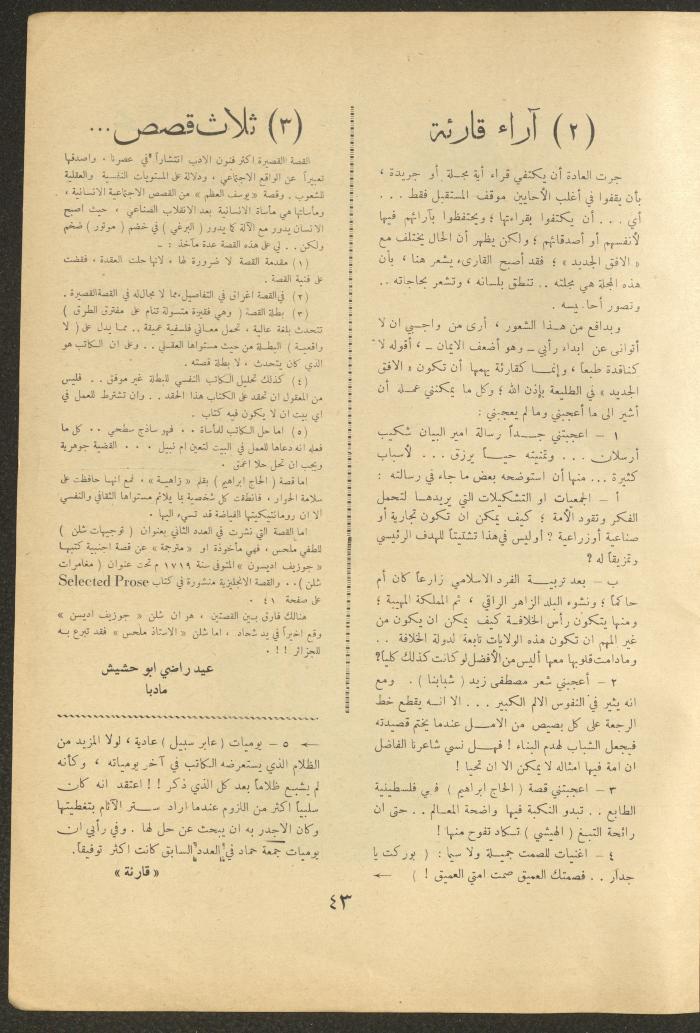 (٢) آراء قارئة
جرت العادة أن يكتفي قراء أية مجلة أو جريدة ،
بأن يقفوا في أغلب الأحايين موقف المستقبل فقط . . .
أي . . . أن يكتفوا بقراءتها ؛ ويحتفظوا بآرائهم فيها
لأنفسهم أو أصدقائهم ؛ ولكن يظهر أن الحال يختلف مع
« الافق الجديد » ؛ فقد أصبح القارىء يشعر هنا ، بأن
هذه المجلة هي مجلته .. تنطق بلسانه ، وتشعر بحاجاته ..
وتصور أحاسيسه .
وبدافع من هذا الشعور ، أرى من واجبي ان لا
أتوانى عن ابداء رأيي ــ وهو أضعف الايمان ــ ، أقوله لا
كناقدة طبعاً ، وإنما كقارئة يهمها أن تكون « الافق
الجديد » في الطليعة بإذن الله ؛ وكل ما يمكنني عمله أن
أشير الى ما أعجبني وما لم يعجبني :
١ ــ اعجبتني جداً رسالة امير البيان شكيب
أرسلان . . . وتمنيته حياً يرزق . . . لأسباب
كثيرة ... منها أن استوضحه بعض ما جاء في رسالته :
أ ــ الجمعيات او التشكيلات التي يريدها لتحمل
الفكر وتقود الأمة ؛ كيف يمكن ان تكون تجارية أو
صناعية أوزراعية ؟ أوليس في هذا تشتيتاً للهدف الرئيسي
وتمزيقاً له ؟
ب ــ بعد تربية الفرد الاسلامي زارعاً كان أم
حاكماً ؛ ونشوء البلد الزاهر الراقي ، ثم المملكة المهيبة ؛
ومنها يتكون رأس الخلافة كيف يمكن ان يكون من
غير المهم ان تكون هذه الولايات تابعة لدولة الخلافة ..
ومادامت قلوبها معها أليس من الأفضل لو كانت كذلك كلياً؟
٢ ــ أعجبني شعر مصطفى زيد ( شبابنا ) . ومع
انه يثير في النفوس الالم الكبير . . . الا انه يقطع خط
الرجعة على كل بصيص من الامل عندما يختم قصيدته
فيجعل الشباب لهدم البناء ! فهل نسي شاعرنا الفاضل
ان امة فيها امثاله لا يمكن الا ان تحيا !
٣ ــ اعجبتني قصة ( الحاج ابراهيم ) فهي فلسطينية
الطابع .. تبدو النكبة فيها واضحة المعالم .. حتى ان
رائحة التبغ ( الهيشي ) تكاد تفوح منها !
٤ ــ اغنيات للصمت جميلة ولا سيما : ( بوركت يا
جدار .. فصمتك العميق صمت امتي العميق ! ) ←
← ٥ ــ يوميات ( عابر سبيل ) عادية ، لولا المزيد من
الظلام الذي يستعرضه الكاتب في آخر يومياته ، وكأنه
لم يشبع ظلاماً بعد كل الذي ذكر ! ! اعتقد انه كان
سلبياً اكثر من اللزوم عندما اراد ستر الآثام بتغطيتها
وكان الاجدر به ان يبحث عن حل لها . وفي رأيي ان
يوميات جمعة حماد في العدد السابق كانت اكثر توفيقاً.
« قارئة »
(٣) ثلاث قصص ...
القصة القصيرة اكثر فنون الادب انتشاراً في عصرنا ، واصدقها
تعبيراً عن الواقع الاجتماعي ، ودلالة على المستويات النفسية والعقلية
للشعوب . وقصة « يوسف العظم » من القصص الاجتماعية الانسانية ،
ومأساتها هي مأساة الانسانية بعد الانقلاب الصناعي ، حيث اصبح
الانسان يدور مع الآلة كما يدور ( البرغي ) في خضم ( موتور ) ضخم
ولكن .. لي على هذه القصة عدة مآخذ : ــ
(١) مقدمة القصة لا ضرورة لها ، لانها حلت العقدة ، فقضت
على فنية القصة .
(٢) في القصة اغراق في التفاصيل، مما لا مجال له في القصة القصيرة .
(٣) بطلة القصة ( وهي فقيرة متسولة تنام على مفترق الطرق )
تتحدث بلغة عالية ، تحمل معاني فلسفية عميقة .. مما يدل على ( لا
واقعية ) البطلة من حيث مستواها العقلي .. وعلى ان الكاتب هو
الذي كان يتحدث ، لا بطلة قصته .
(٤) كذلك تحليل الكاتب النفسي للبطلة غير موفق .. فليس
من المعقول ان تحقد على الكتاب هذا الحقد .. وان تشترط للعمل في
اي بيت ان لا يكون فيه كتاب .
(٥) اما حل الكاتب للمأساة .. فهو ساذج سطحي .. كل ما
فعله انه دعاها للعمل في البيت لتعين ام نبيل . . . القضية جوهرية
ويجب ان تحل حلا اعمق .
اما قصة ( الحاج ابراهيم ) بقلم « زاهية » ، فمع انها حافظت على
سلامة الحوار ، فانطقت كل شخصية بما يلائم مستواها الثقافي والنفسي
الا ان رومانتيكيتها الفياضة قد تسيء اليها .
اما القصة التي نشرت في العدد الثاني بعنوان ( توجيهات شلن )
للطفي ملحس ، فهي مأخوذة او « مترجمة » عن قصة اجنبية كتبها
« جوزيف اديسون » المتوفى سنة ١٧١٩ م تحت عنوان ( مغامرات
شلن ) .. والقصة الانجليزية منشورة في كتاب Selected Prose
على صفحة ٤١ .
هنالك فارق بين القصتين ، هو ان شلن « جوزيف اديسن »
وقع اخيراً في يد شحاد ، اما شلن « الاستاذ ملحس » فقد تبرع به
للجزائر ! ! ! .
عيد راضي ابو حشيش
مادبا
٤٣